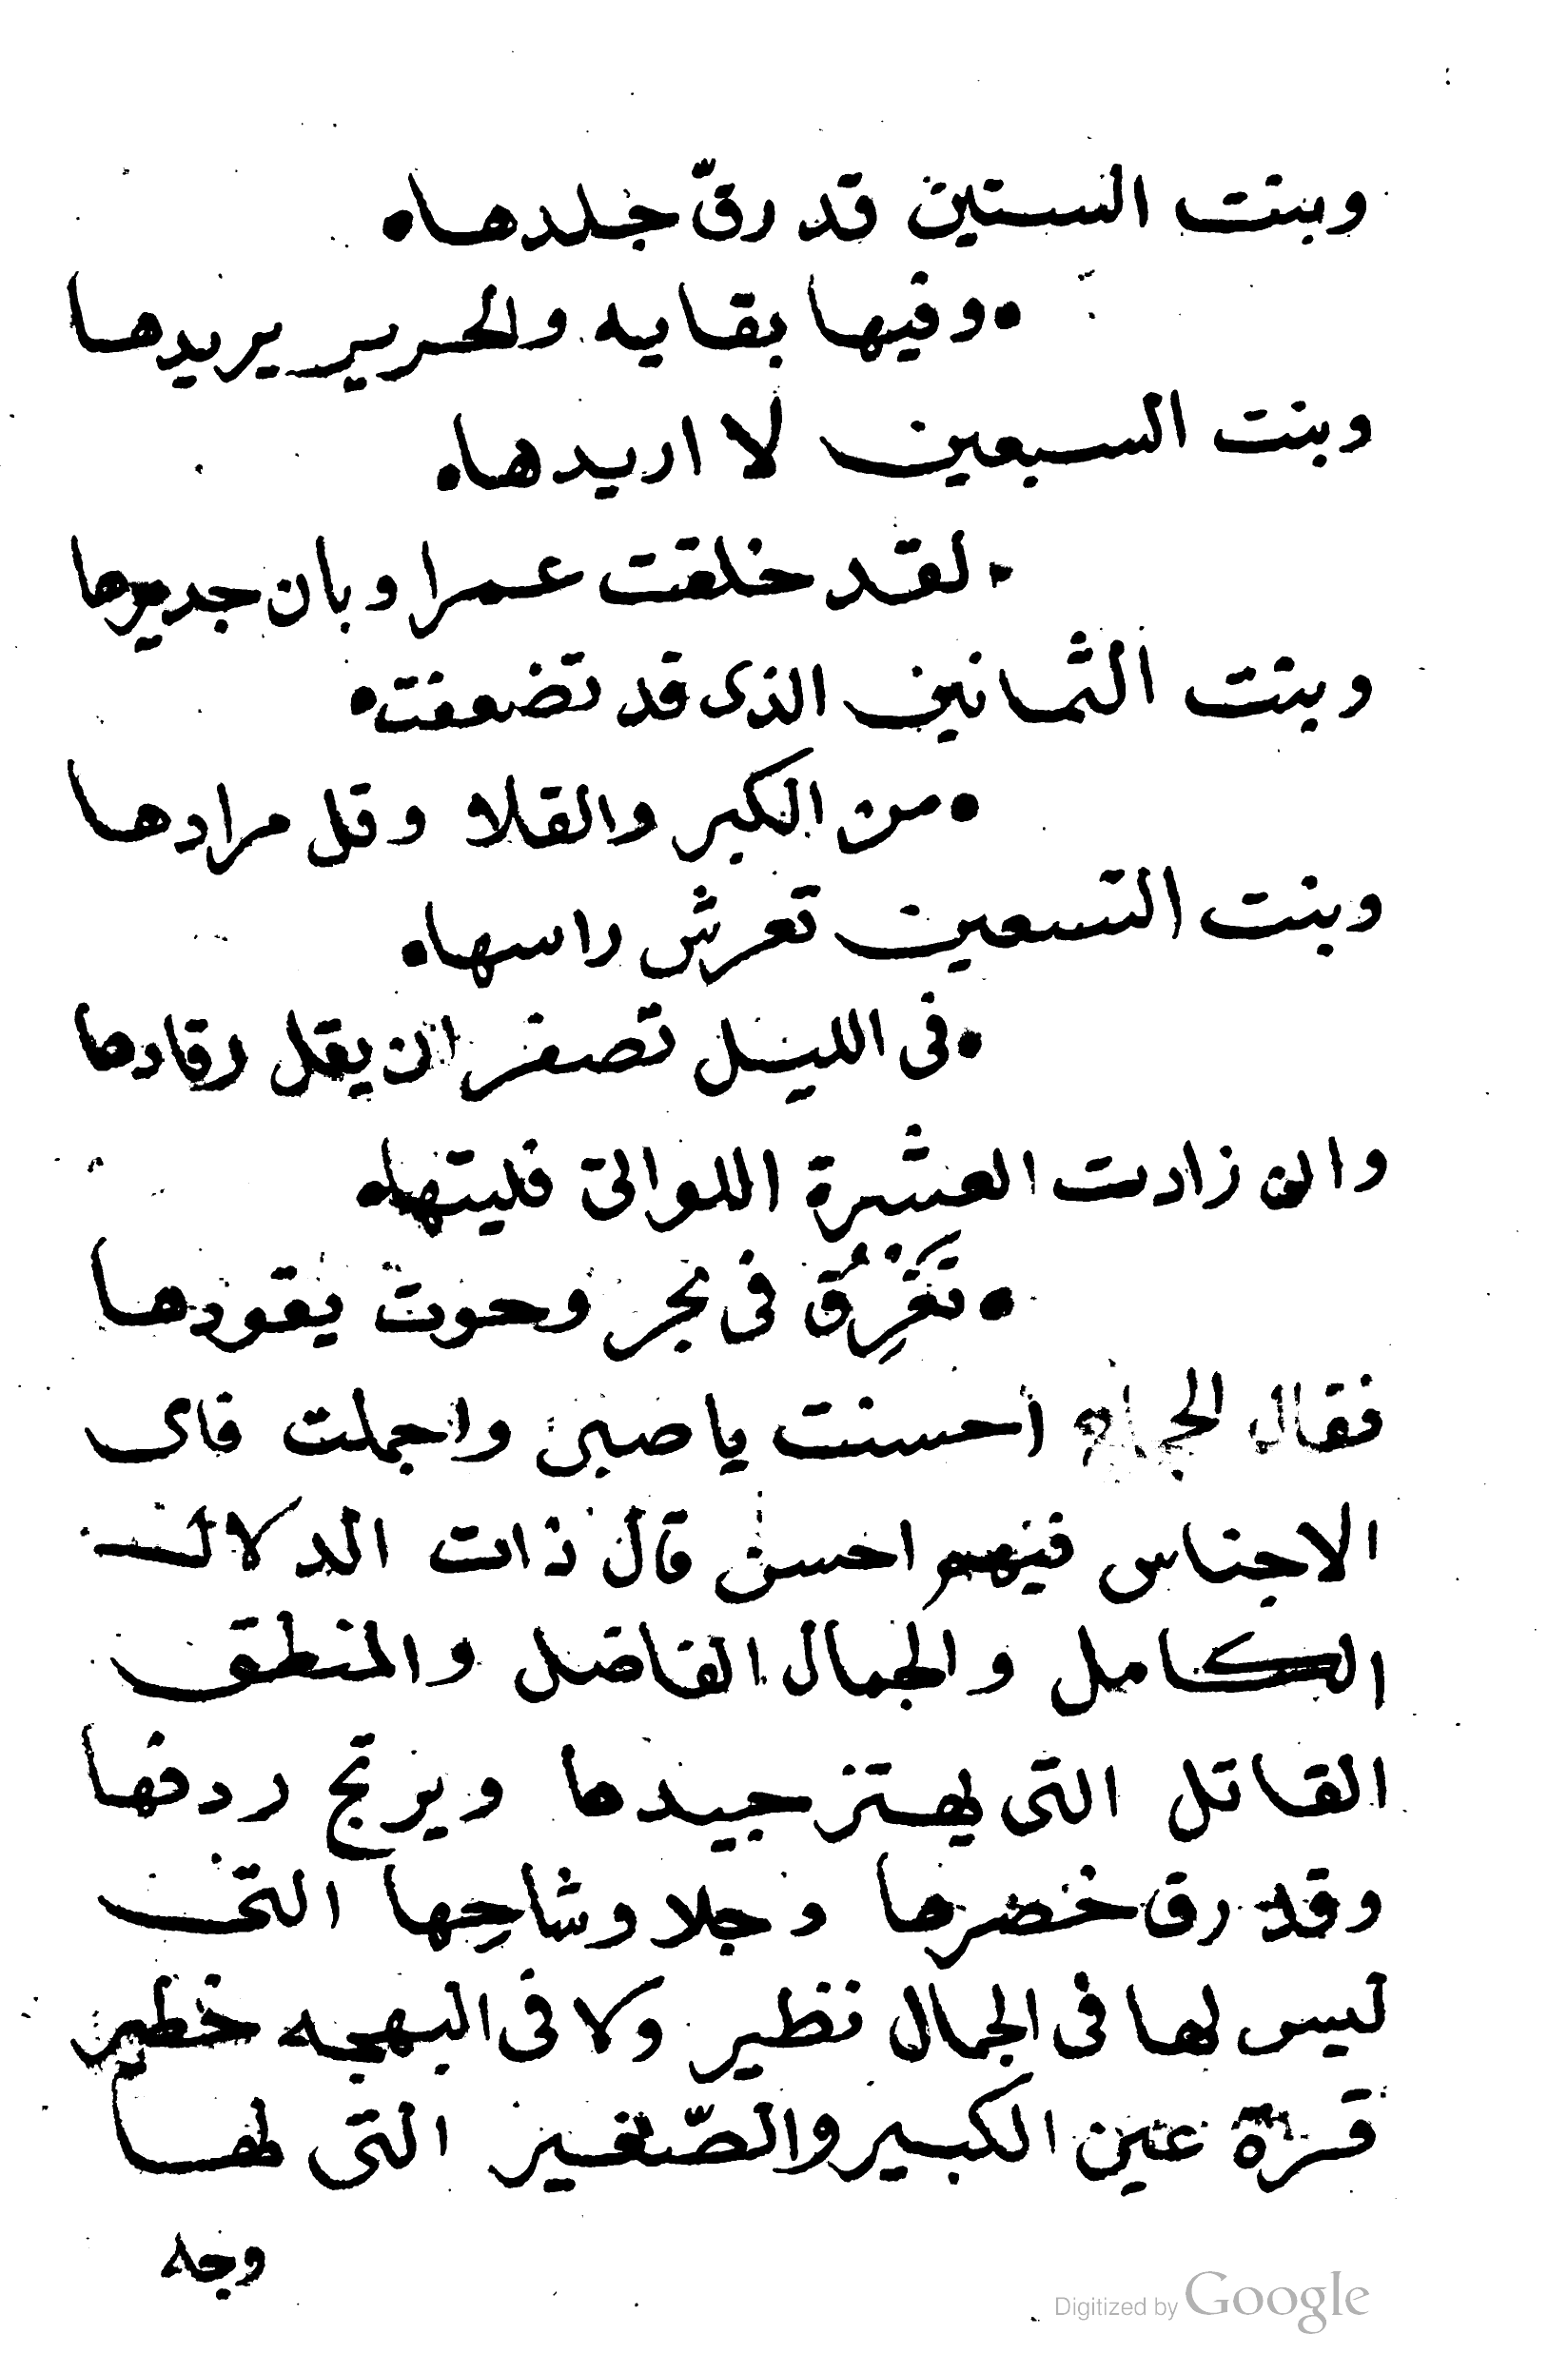 وبنت الستين قد رقّ جلدها •
• وفيها بقايه والحرير يريدها
وبنت السبعين لا اريدها •
• لقد خلقت عمرا وبان جديدها
وبنت الثمانين الذى قد تضعفت •
• من الكبر والقلا وقل مرادها
وبنت التسعين تعرش راسها •
• فى الليل تصفر ان يقل رقادها
وان زادت العشرة اللواتى فليتها •
• تَغْرِقُ فى بحر وحوت يقودها
فقال الحجاج احسنت يا صبى واجملت فاى
الاجناس فيهم احسن قال ذات الدلال
الكامل والجمال الفاضل والمنطق
القاتل التى يهتز جيدها ويرتج ردفها
وقد رق خصرها وجلا وشاحها التى
ليس لها فى الجمال نظير ولا فى البهجه خطير
قرة عين الكبير والصّغير التى لها
وجه
Digitized by Google